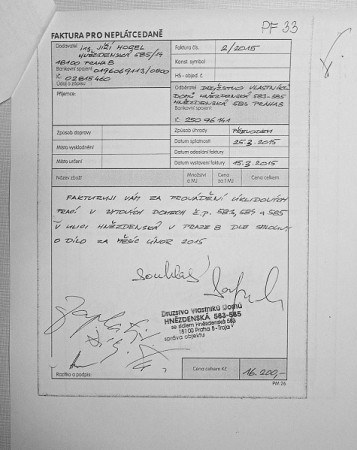 PF 33
FAKTURA PRO NEPLÁTCE DANĚ
Dodavatel: ING. JIŘÍ KOGEL
HNĚZDENSKÁ 585/
18100 PRAHA 8
Bankovní spojení
IČ 02818460
Faktura čís. 2/2015
Konst. symbol
HS - objed. č.
Odběratel: DRUŽSTVO VLASTNÍKŮ
DOMŮ HNĚZDENSKÁ 583-585
HNĚZDENSKÁ 583 PRAHA 8
Bankovní spojení
Příjemce:
Způsob dopravy
Místo určení
Způsob úhrady PŘEVODEM
Datum splatnosti 25.3.2015
Datum odeslání faktury
Datum vystavení faktury 15.3.2015
Název zboží
Množství v MJ
Cena za 1 MJ
Cena celkem
FAKTURUJI VÁM ZA PROVÁDĚNÍ ÚKLIDOVÝCH
PRACÍ V BYTOVÝCH DOMECH Č.P. 583, 584 A 585
V ULICI HNĚZDENSKÁ V PRAZE 8 DLE SMLOUVY
O DÍLO ZA MĚSÍC ÚNOR 2015
Souhlasí
Družstvo vlastníků domů
HNĚZDENSKÁ 583-585
se sídlem Hněznenská 583,
18100 Praha 8-Troja
správa objektu
Razítko a podpis:
Cena celkem Kč
16.200,-